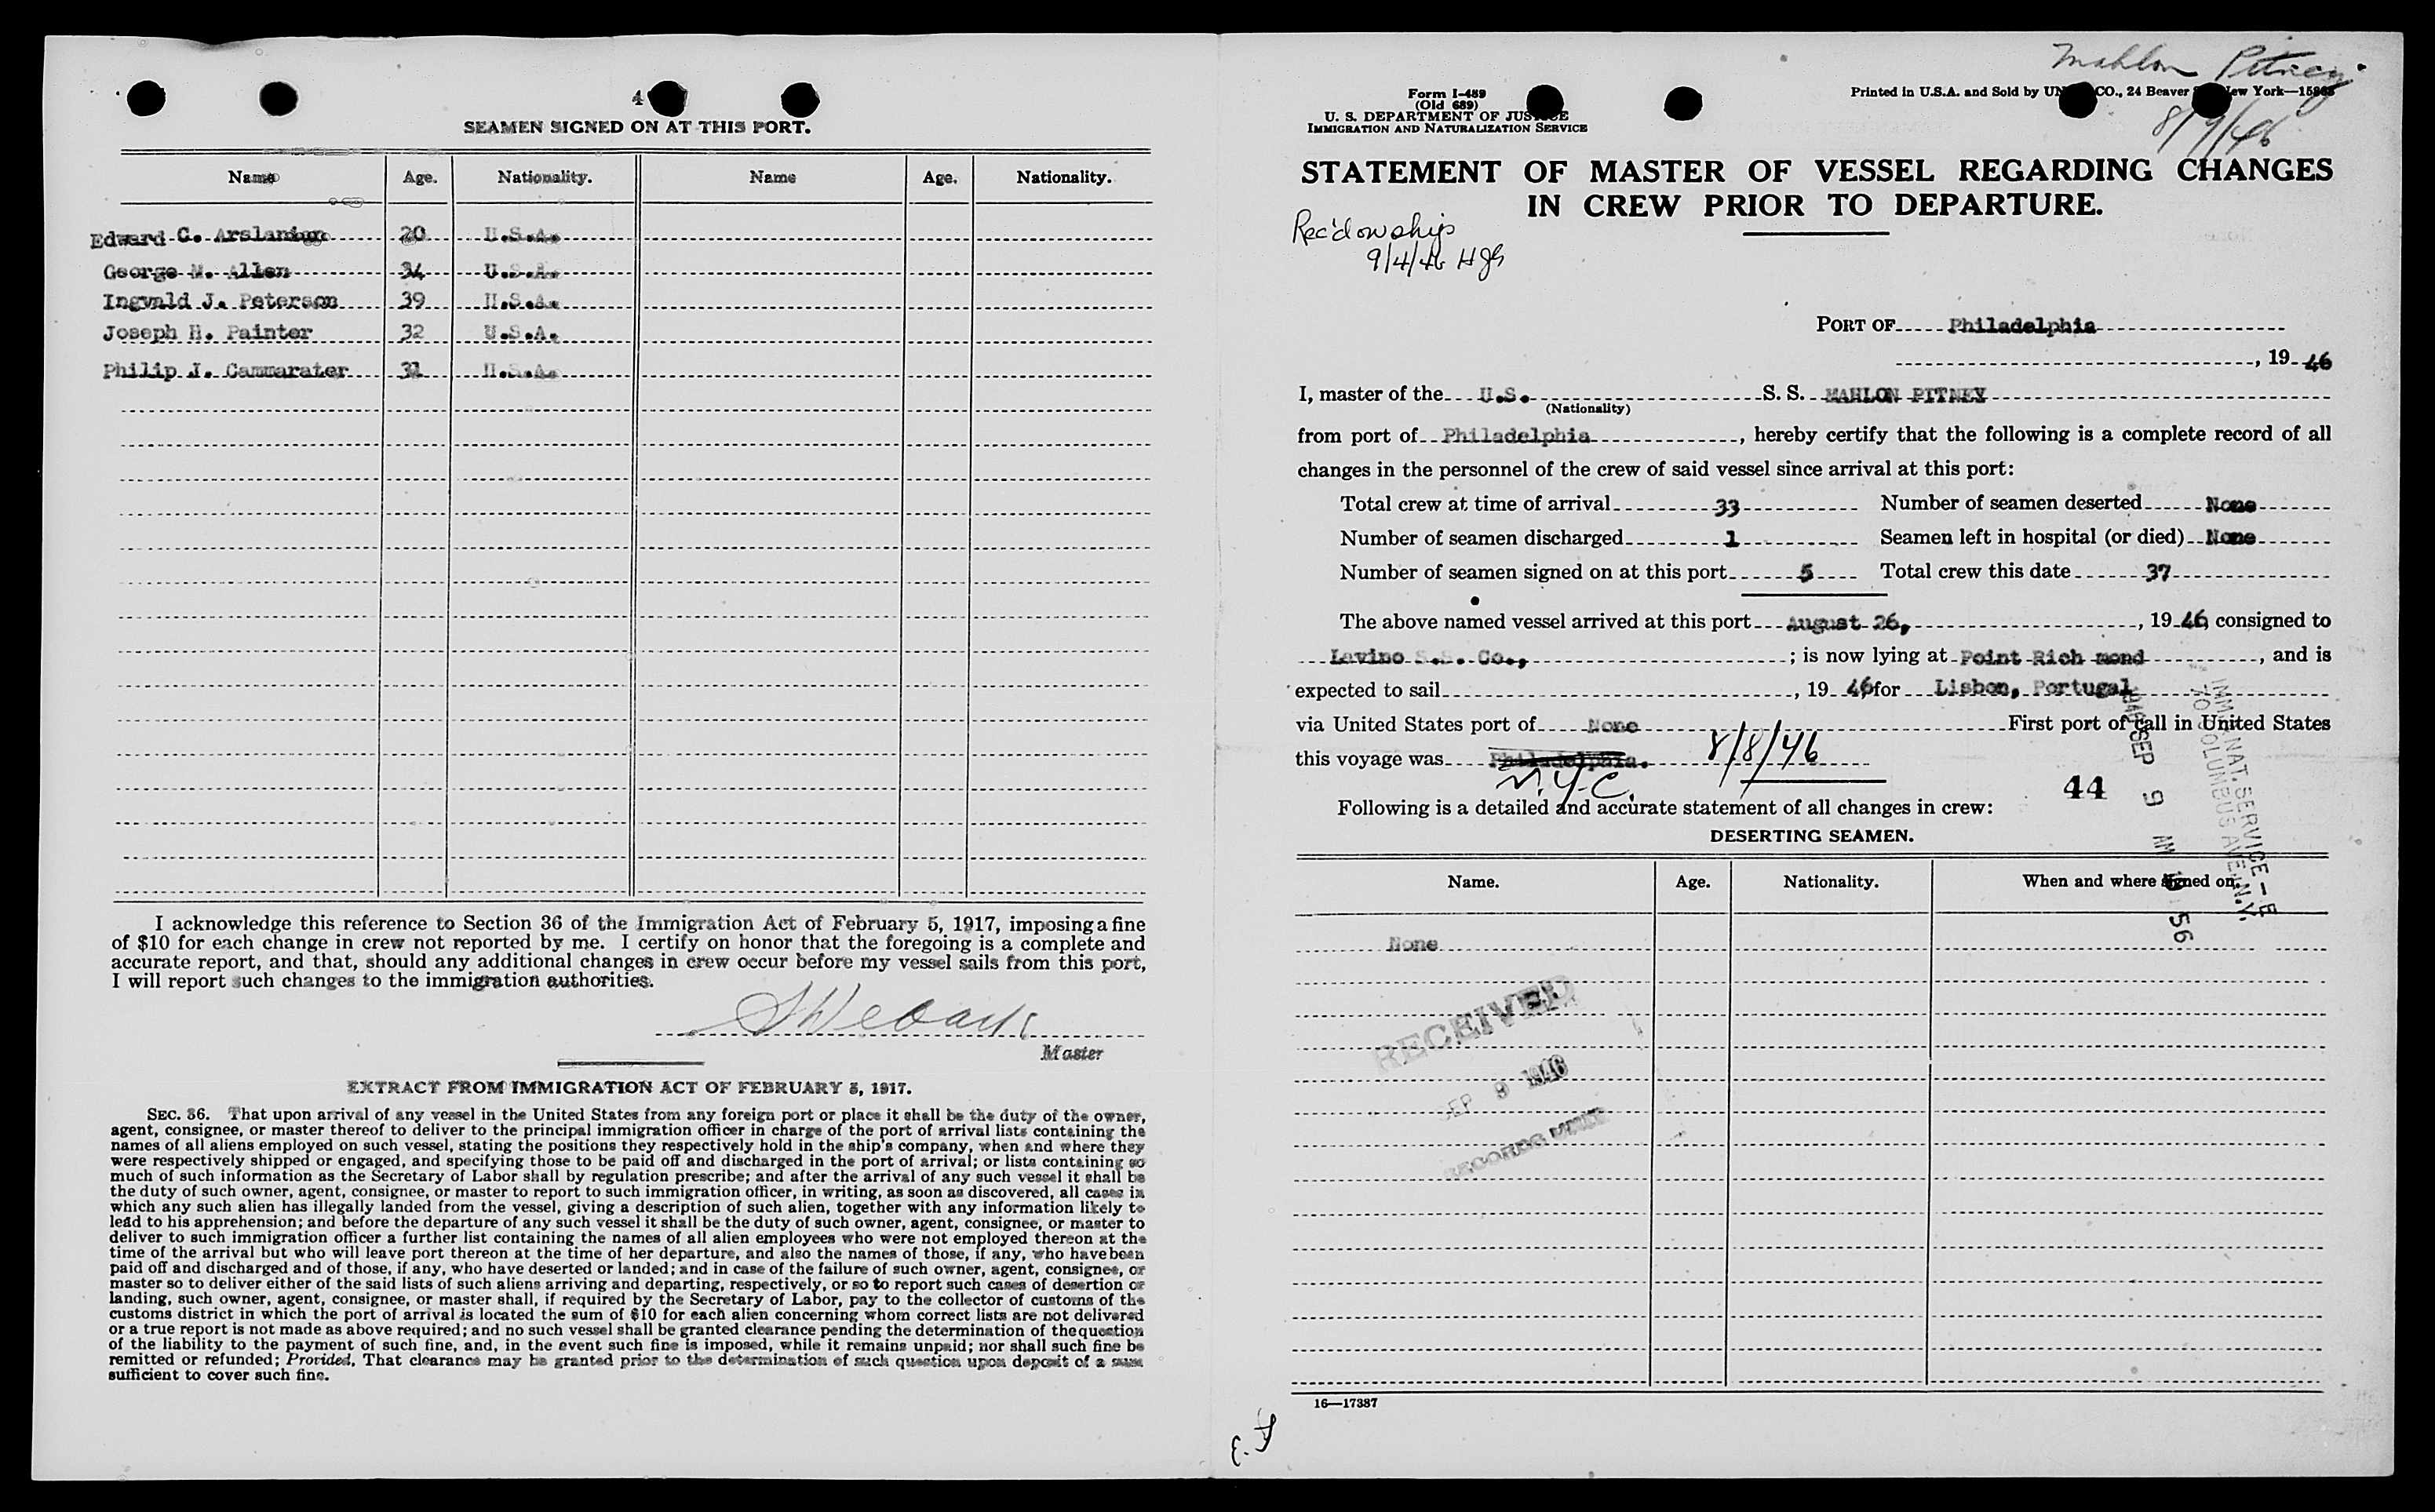 4
SEAMEN SIGNED ON AT THIS PORT.
Name Age. Nationality. Name Age. Nationality.
Edward C. Arslanian 20 U.S.A.
George M. Allen 34 U.S.A.
Ingvald J. Peterson 39 U.S.A.
Joseph H. Painter 32 U.S.A.
Philip I. Cammarater 31 U.S.A.
I acknowledge this reference to Section 36 of the Immigration Act of February 5, 1917, imposing a fine
of $10 for each change in crew not reported by me. I certify on honor that the foregoing is a complete and
accurate report, and that, should any additional changes in crew occur before my vessel sails from this port,
I will report such changes to the immigration authorities.
Master
EXTRACT FROM IMMIGRATION ACT OF FEBRUARY 5, 1917.
SEC. 36. That upon arrival of any vessel in the United States from any foreign port or place it shall be the duty of the owner,
agent, consignee, or master thereof to deliver to the principal immigration officer in charge of the port of arrival lists containing the
names of all aliens employed on such vessel, stating the positions they respectively hold in the ship's company, when and where they
were respectively shipped or engaged, and specifying those to be paid off and discharged in the port of arrival; or lists containing so
much of such information as the Secretary of Labor shall by regulation prescribe; and after the arrival of any such vessel it shall be
the duty of such owner, agent, consignee, or master to report to such immigration officer, in writing, as soon as discovered, all cases in
which any such alien has illegally landed from the vessel, giving a description of such alien, together with any information likely to
lead to his apprehension; and before the departure of any such vessel it shall be the duty of such owner, agent, consignee, or master to
deliver to such immigration officer a further list containing the names of all alien employees who were not employed thereon at the
time of the arrival but who will leave port thereon at the time of her departure, and also the names of those, if any, who have been
paid off and discharged and of those, if any, who have deserted or landed; and in case of the failure of such owner, agent, consignee, or
master so to deliver either of the said lists of such aliens arriving and departing, respectively, or so to report such cases of desertion or
landing, such owner, agent, consignee, or master shall, if required by the Secretary of Labor, pay to the collector of customs of the
customs district in which the port of arrival is located the sum of $10 for each alien concerning whom correct lists are not delivered
or a true report is not made as above required; and no such vessel shall be granted clearance pending the determination of the question
of the liability to the payment of such fine, and, in the event such fine is imposed, while it remains unpaid; nor shall such fine be
remitted or refunded; Provided, That clearance may be granted prior to the determination of such question upon deposit of a sum
sufficient to cover such fine.
Mahlon Pitney
8/9/46
Form I-489
(Old 689)
U. S. DEPARTMENT OF JUSTICE
IMMIGRATION AND NATURALIZATION SERVICE
Printed in U.S.A. and Sold by CO., 24 Beaver New York—
STATEMENT OF MASTER OF VESSEL REGARDING CHANGES
IN CREW PRIOR TO DEPARTURE.
Rec'd on ship
9/4/46 HJS
PORT OF Philadelphia
, 19 46
I, master of the U.S. S. S. MAHLON PITNEY
(Nationality)
from port of Philadelphia, hereby certify that the following is a complete record of all
changes in the personnel of the crew of said vessel since arrival at this port:
Total crew at time of arrival 33 Number of seamen deserted None
Number of seamen discharged 1 Seamen left in hospital (or died) None
Number of seamen signed on at this port 5 Total crew this date 37
The above named vessel arrived at this port August 26, , 19 46, consigned to
Lavino S.S. Co., ; is now lying at Point Rich mond , and is
expected to sail , 19 46, for Lisbon, Portugal
via United States port of None First port of call in United States
this voyage was Philadelphia. 8/8/46
N.Y.C.
Following is a detailed and accurate statement of all changes in crew:
44
1946 SEP 9 AM 10 56
IMM. & NAT. SERVICE - E
70 COLUMBUS AVE. N.Y.
DESERTING SEAMEN.
Name. Age. Nationality. When and where signed on.
None
RECEIVED
SEP 9 1946
RECORDS
16—17387